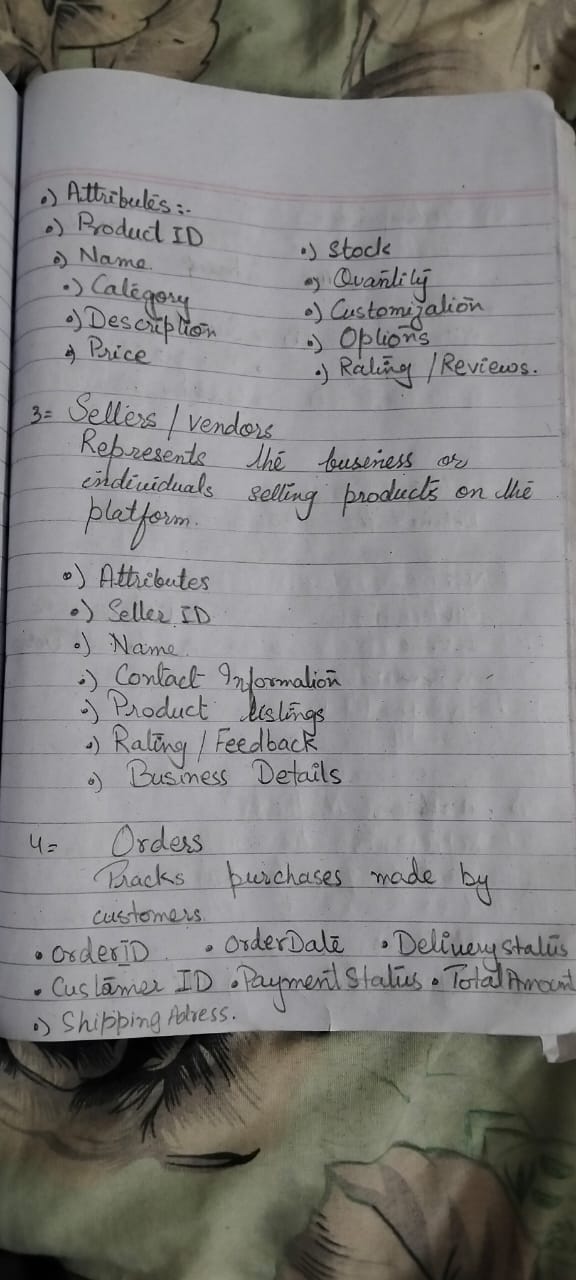 •) Attributes :-
•) Product ID
•) Name
•) Category
•) Description
•) Price
•) Stock
•) Quantity
•) Customization
•) Options
•) Rating / Reviews.
3= Sellers / vendors
Represents the business or
individuals selling products on the
platform.
•) Attributes
•) Seller ID
•) Name
•) Contact Information
•) Product listings
•) Rating / Feedback
•) Business Details
4= Orders
Tracks purchases made by
customers
• OrderID • OrderDate • Delivery status
• Custamer ID • Payment Status • Total Amount
•) Shipping Adress.